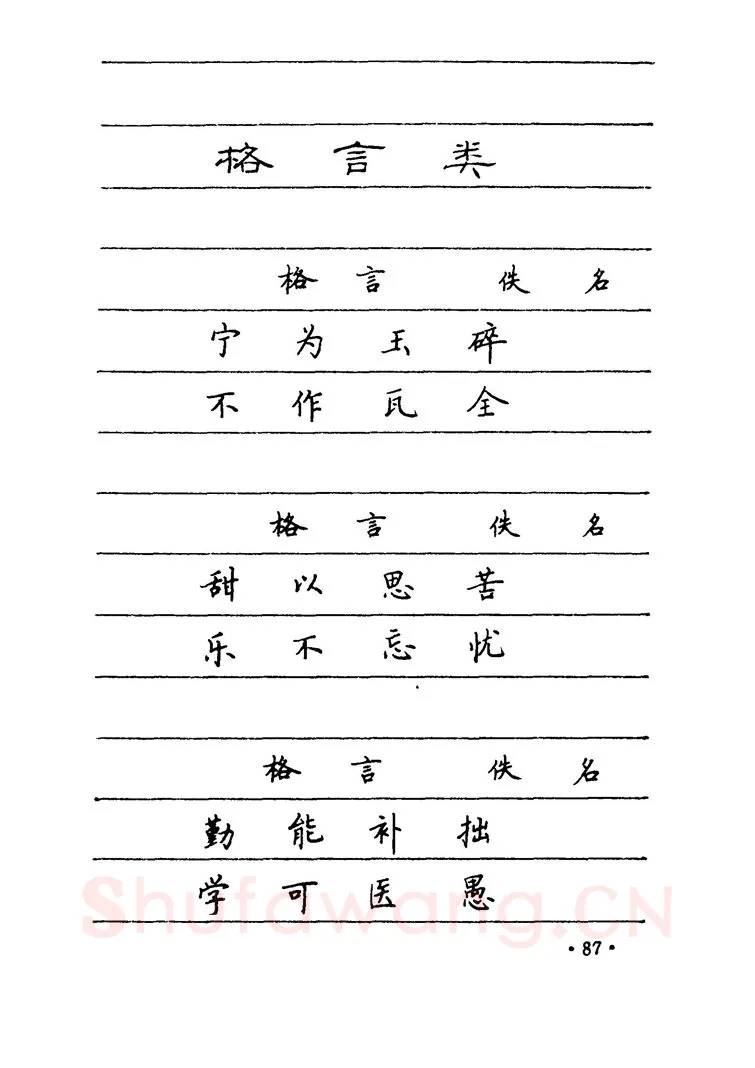 格言类
格言 佚名
宁为玉碎
不作瓦全
格言 佚名
甜以思苦
乐不忘忧
格言 佚名
勤能补拙
学可医愚
Shufawang.CN
·87·